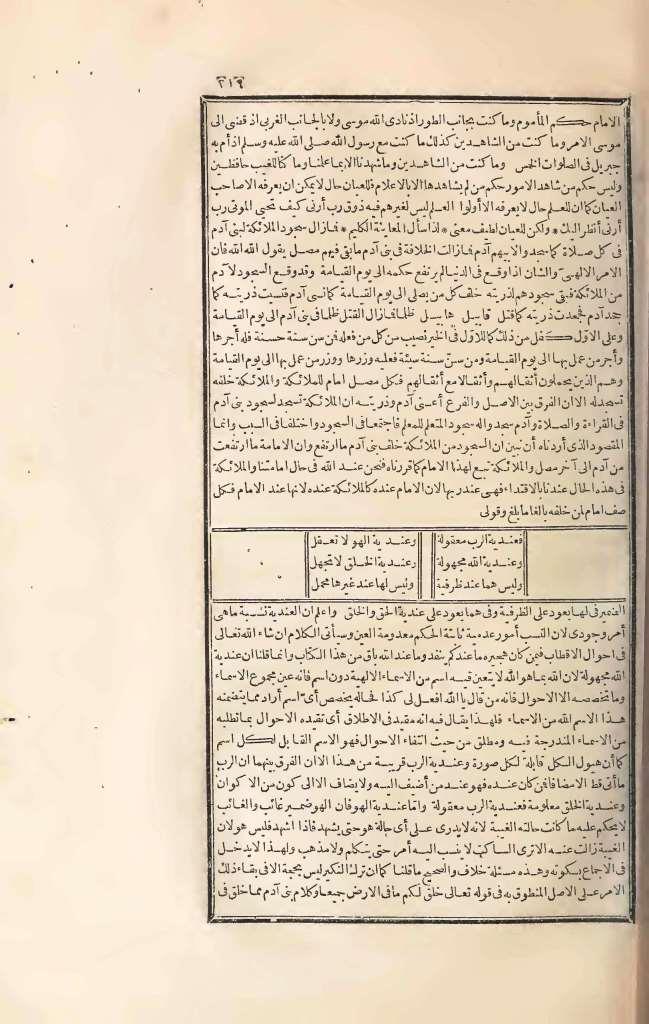 ٢١٩
الامام حكم المأموم وما كنت بجانب الطور اذ نادى الله موسى ولا بالجانب الغربى اذ قضى الى
موسى الامر وما كنت من الشاهدين كذلك ما كنت مع رسول الله صلى الله عليه وسلم اذ أم به
جبريل فى الصلوات الخمس وما كنت من الشاهدين وما شهدنا الا بما علمنا وما كنا للغيب حافظين
وليس حكم من شاهد الامور حكم من لم يشاهدها الا بالاعلام فللعيان حال لا يمكن ان يعرفه الا صاحب
العيان كما ان للعلم حال لا يعرفه الا أولوا العلم ليس لغيرهم فيه ذوق رب أرنى كيف تحيى الموتى رب
أرنى أنظر اليك * ولكن للعيان لطيف معنى * لذا سأل المعاينة الكليم * فما زال سجود الملائكة لبنى آدم
فى كل صلاة كما سجدوا لابيهم آدم فما زالت الخلافة فى بنى آدم ما بقى فيهم مصل يقول الله الله فان
الامر الالهى والشان اذا وقع فى الدنيا لم يرتفع حكمه الى يوم القيامة وقد وقع السجود لآدم
من الملائكة فبقى سجودهم لذريته خلف كل من يصلى الى يوم القيامة كما نسى آدم فنسيت ذريته كما
جحد آدم فجحدت ذريته كما قتل قابيل هابيل ظلما فما زال القتل ظلما فى بنى آدم الى يوم القيامة
وعلى الاول كفل من ذلك كما للاول فى الخير نصيب من كل من فعله فمن سن سنة حسنة فله أجرها
وأجر من عمل بها الى يوم القيامة ومن سن سنة سيئة فعليه وزرها ووزر من عمل بها الى يوم القيامة
وهم الذين يحملون أثقالهم وأثقالا مع أثقالهم فكل مصل امام للملائكة والملائكة خلفه
تسجد له الا ان الفرق بين الاصل والفرع أعنى آدم وذريته ان الملائكة تسجد لسجود بنى آدم
فى القراءة والصلاة وآدم سجدوا له سجود المتعلم للمعلم فاجتمعا فى السجود واختلفا فى السبب وانما
المقصود الذى أردناه أن نبين ان السجود من الملائكة خلف بنى آدم ما ارتفع وان الامامة ما ارتفعت
من آدم الى آخر مصل والملائكة تبع لهذا الامام كما قررناه فنحن عند الله فى حال امامتنا والملائكة
فى هذه الحال عندنا بالاقتداء فهى عند ربها لان الامام عنده كالملائكة عنده لانها عند الامام فكل
صف امام لمن خلفه بالغا ما بلغ وقولى
فعندية الرب معقولة وعندية الهو لا تعقل
وعندية الله مجهولة وعندية الخلق لا تجهل
وليس هما عند ظرفية وليس لها عند غيرها محمل
الضمير فى لها يعود على الظرفية وفى هما يعود على عندية الحق والخلق واعلم ان العندية نسبة ما هى
أمر وجودى لان النسب أمور عدمية ثابتة الحكم معدومة العين وسيأتى الكلام ان شاء الله تعالى
فى احوال الاقطاب فيمن كان هجيره ما عندكم ينفد وما عند الله باق من هذا الكتاب وانما قلنا ان عندية
الله مجهولة لان الله بما هو الله لا يتعين فيه اسم من الاسماء الالهية دون اسم فانه عين مجموع الاسماء
وما تخصصه الا الاحوال فانه من قال يا الله افعل لى كذا فحاله يخصص أى اسم أراد مما يتضمنه
هذا الاسم الله من الاسماء فلهذا يقال فيه انه مقيد فى الاطلاق أى تقيده الاحوال بما تطلبه
من الاسماء المندرجة فيه ومطلق من حيث انتفاء الاحوال فهو الاسم القابل لكل اسم
كما أن هيول الكل قابلة لكل صورة وعندية الرب قريبة من هذا الا ان الفرق بينهما ان الرب
ما أتى قط الا مضافا فمن كان عنده فهو عند من أضيف اليه ولا يضاف الا الى كون من الاكوان
وعندية الخلق معلومة فعندية الرب معقولة واما عندية الهو فان الهو ضمير غائب والغائب
لا يحكم عليه ما كانت حالته الغيبة لانه لا يدرى على أى حالة هو حتى يشهد فاذا اشهد فليس هو لان
الغيبة زالت عنه الا ترى الساكت لا ينسب اليه أمر حتى يتكلم ولا مذهب ولهذا لا يدخل
فى الاجماع بسكوته وهذه مسئلة خلاف والصحيح ما قلنا كما ان ترك النكير ليس بحجة الا فى بقاء ذلك
الامر على الاصل المنطوق به فى قوله تعالى خلق لكم ما فى الارض جميعا وكلام بنى آدم مما خلق فى